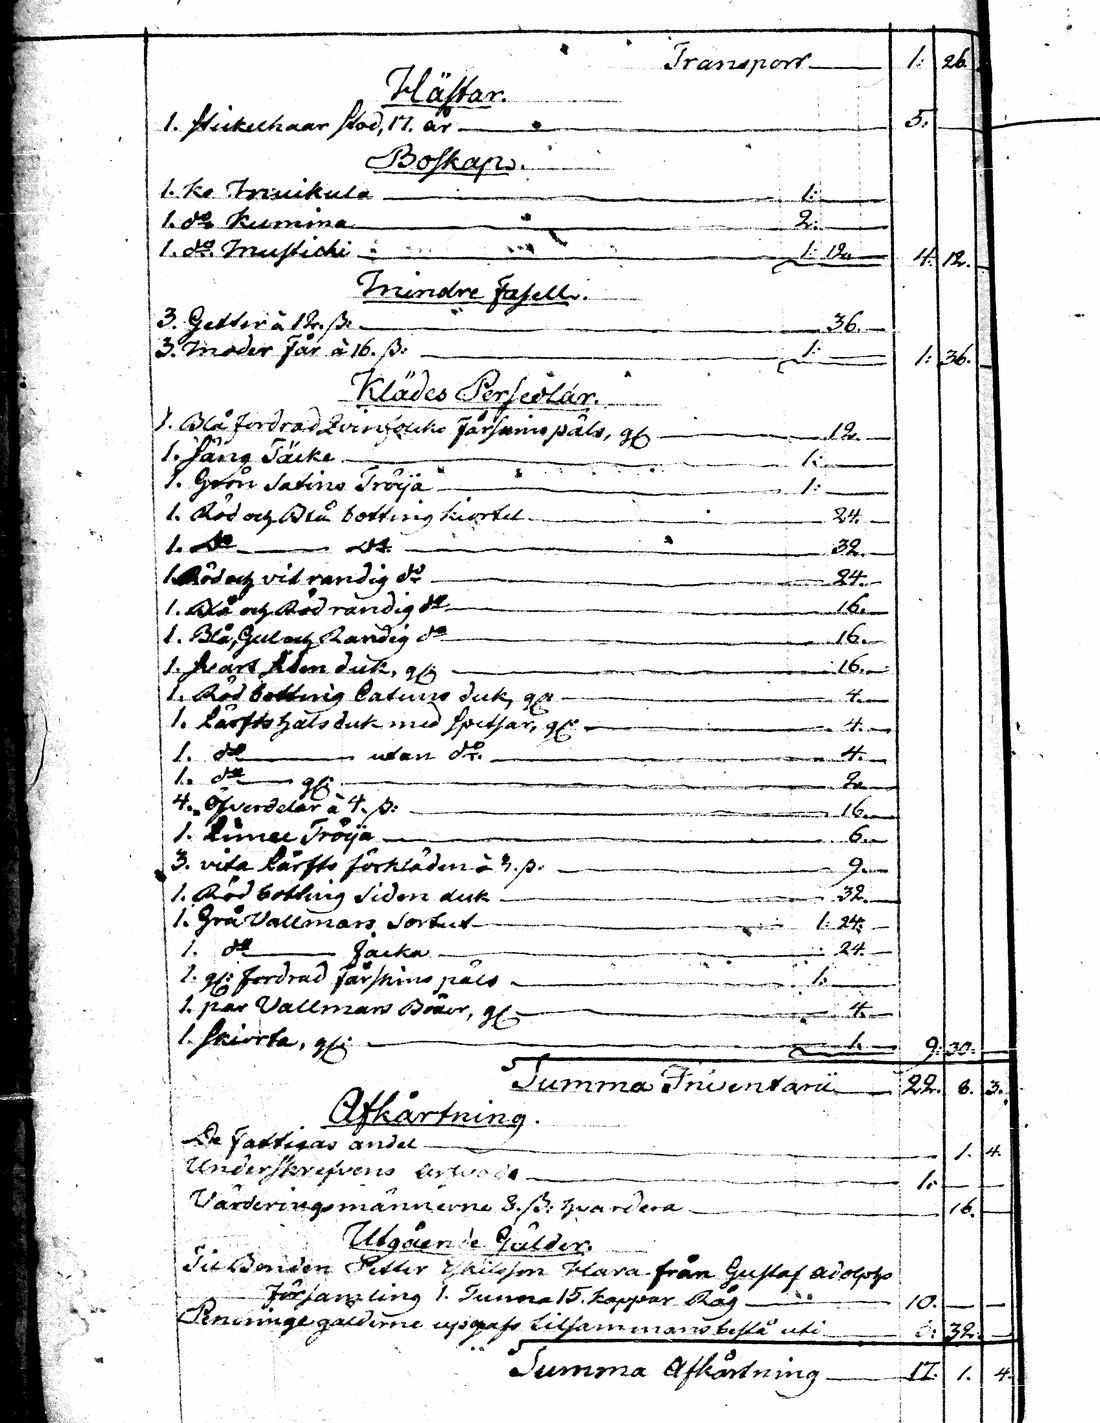 Transport 1: 26.
Hästar.
1. Stickelhaar Stod, 17. år 5.
Boskap.
1. Ko Muikula 1:
1. do Kumina 2:
1. do Musticki 1: 12. 4: 12.
Mindre Fasell.
3. Getter à 12. ß: 36.
3. Moder Får à 16. ß: 1: 1: 36.
Klädes Persedlar.
1. Blå fordrad Fårskins päls, gl 12.
1. Säng Täcke 1:
1. Grön Satins Tröija 1:
1. Röd och Blå botting kiortel 24.
1. Do Do 32.
1. Röd och vit randig do 24.
1. Blå och Röd randig do 16.
1. Blå, Gul och Randig do 16.
1. Svart Siden duk, gl: 16.
1. Röd botting Catuns duk, gl 4.
1. Lärfts halsduk med Spetsar, gl: 4.
1. do utan do. 4.
1. do gl: 2.
4. Öfverdelar à 4. ß: 16.
1. Tröija 6.
3. vita Lärfts förkläden à 3. ß. 9.
1. Röd botting Siden duk 32.
1. Grå Vallmars Sortut 1: 24.
1. do Jacka 24.
1. gl: fordrad Fårskins päls 1:
1. par Vallmars Böxor, gl 4.
1. Skiorta, gl: 1. 9: 30.
Summa Inventarii 22. 8. 3.
Afkårtning.
De Fattigas andel 1. 4.
Underskrefvens 1.
Värderingsmännerne 8. ß: hvardera 16.
Utgående Gälder.
Til Bonden Petter Eskilsson Hara från Gustaf Adolphs
Församling 1. Tunna 15. kappar Råg 10.
Penninge gälderne upgafs tilsammans bestå uti 32.
Summa Afkårtning 17. 1. 4.